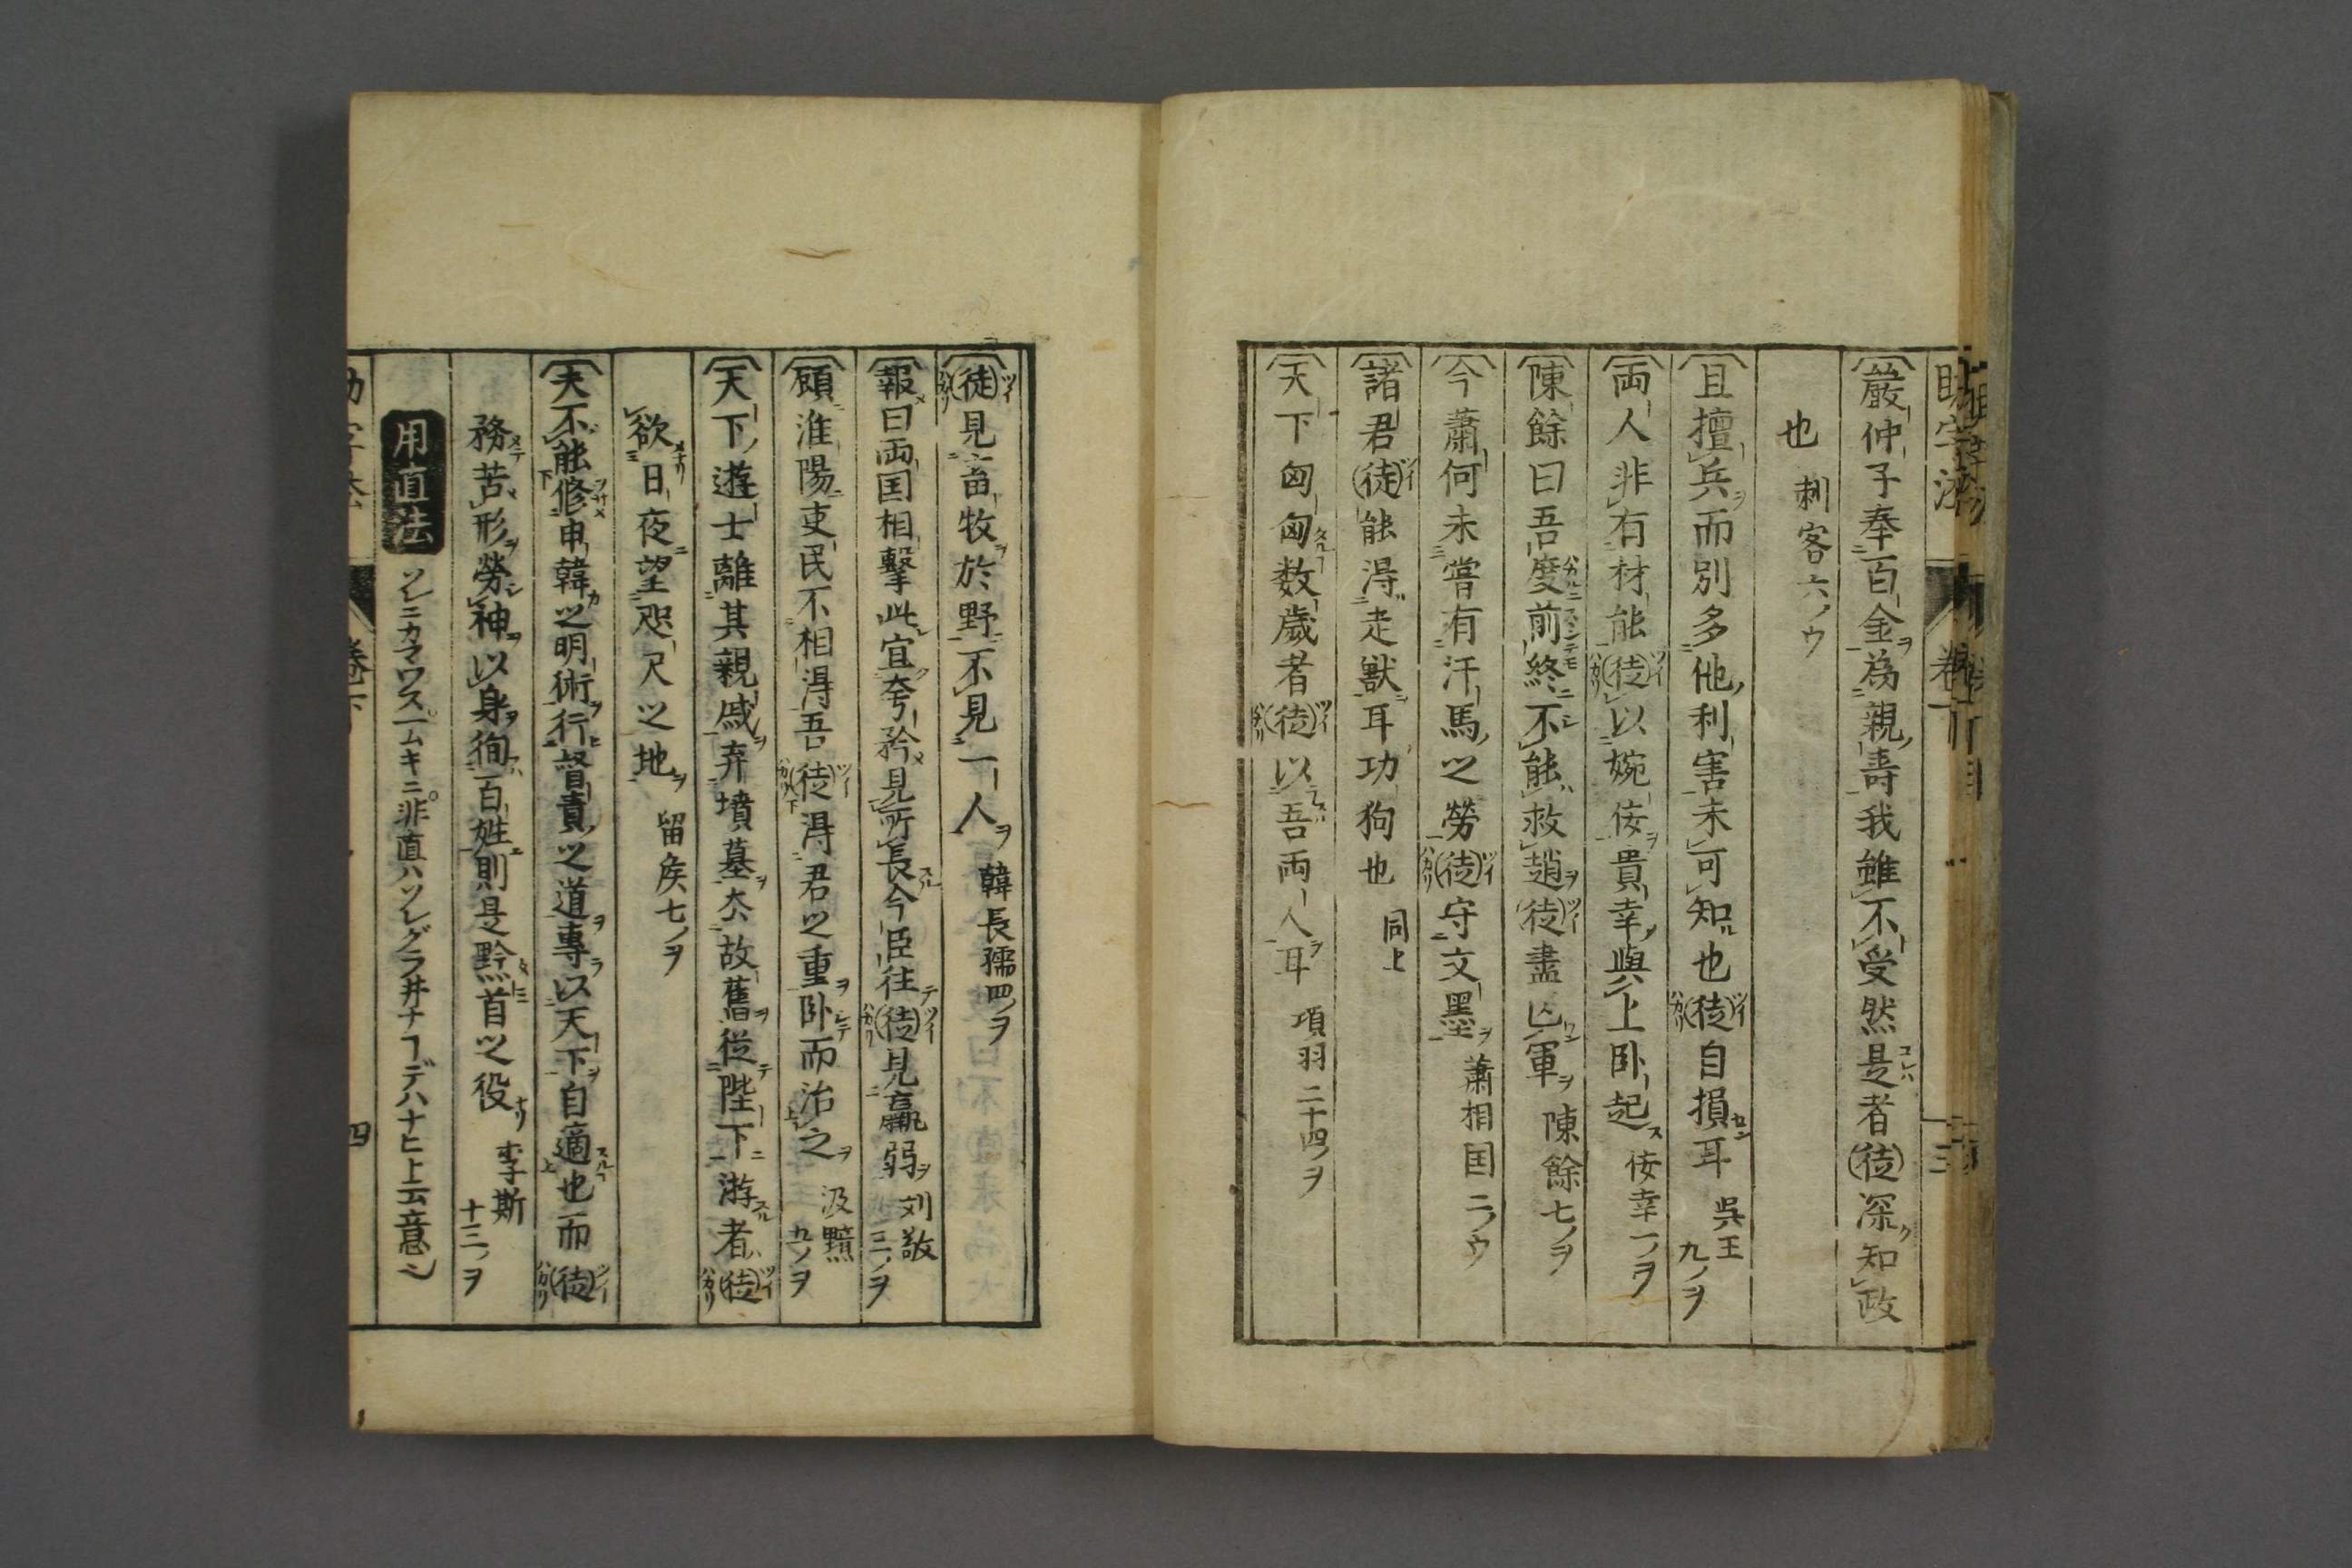 嚴仲子奉百金為親壽我雖不受然是者徒深知政
也 刺客六ノウ
且擅兵而別多他利害未可知也徒自損耳 吳王九ノヲ
両人非有材能徒以婉佞貴幸與上卧起 佞幸一ノヲ
陳餘曰吾度前終不能救趙徒盡亡軍 陳餘七ノヲ
今蕭何未嘗有汗馬之勞徒守文墨 蕭相国二ノウ
諸君徒能得走獸耳功狗也 同上
天下匈匈数歲者徒以吾両人耳 項羽二十四ノヲ
徒見畜牧於野不見一人 韓長孺四ノヲ
報曰両国相擊此宜夸矜見所長今臣往徒見羸弱 刘敬二ノヲ
顧淮陽吏民不相得吾徒得君之重卧而治之 汲黯九ノヲ
天下遊士離其親戚弃墳墓去故舊從陛下游者徒
欲日夜望咫尺之地 留矦七ノヲ
夫不能修申韓之明術行督責之道專以天下自適也而徒
務苦形勞神以身徇百姓則是黔首之役 李斯十二ノヲ
用直法 ソレニカマワス一ムキニ非直ハソレグラ井ナヿデハナヒト云意也
卷下 四